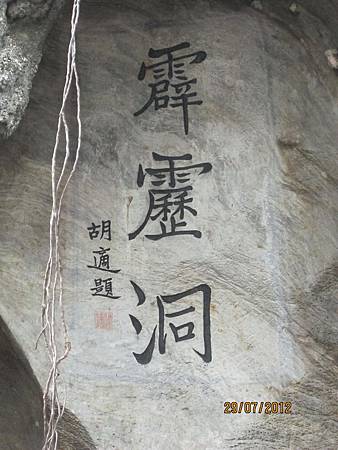 霹靂洞
胡適題
29/07/2012